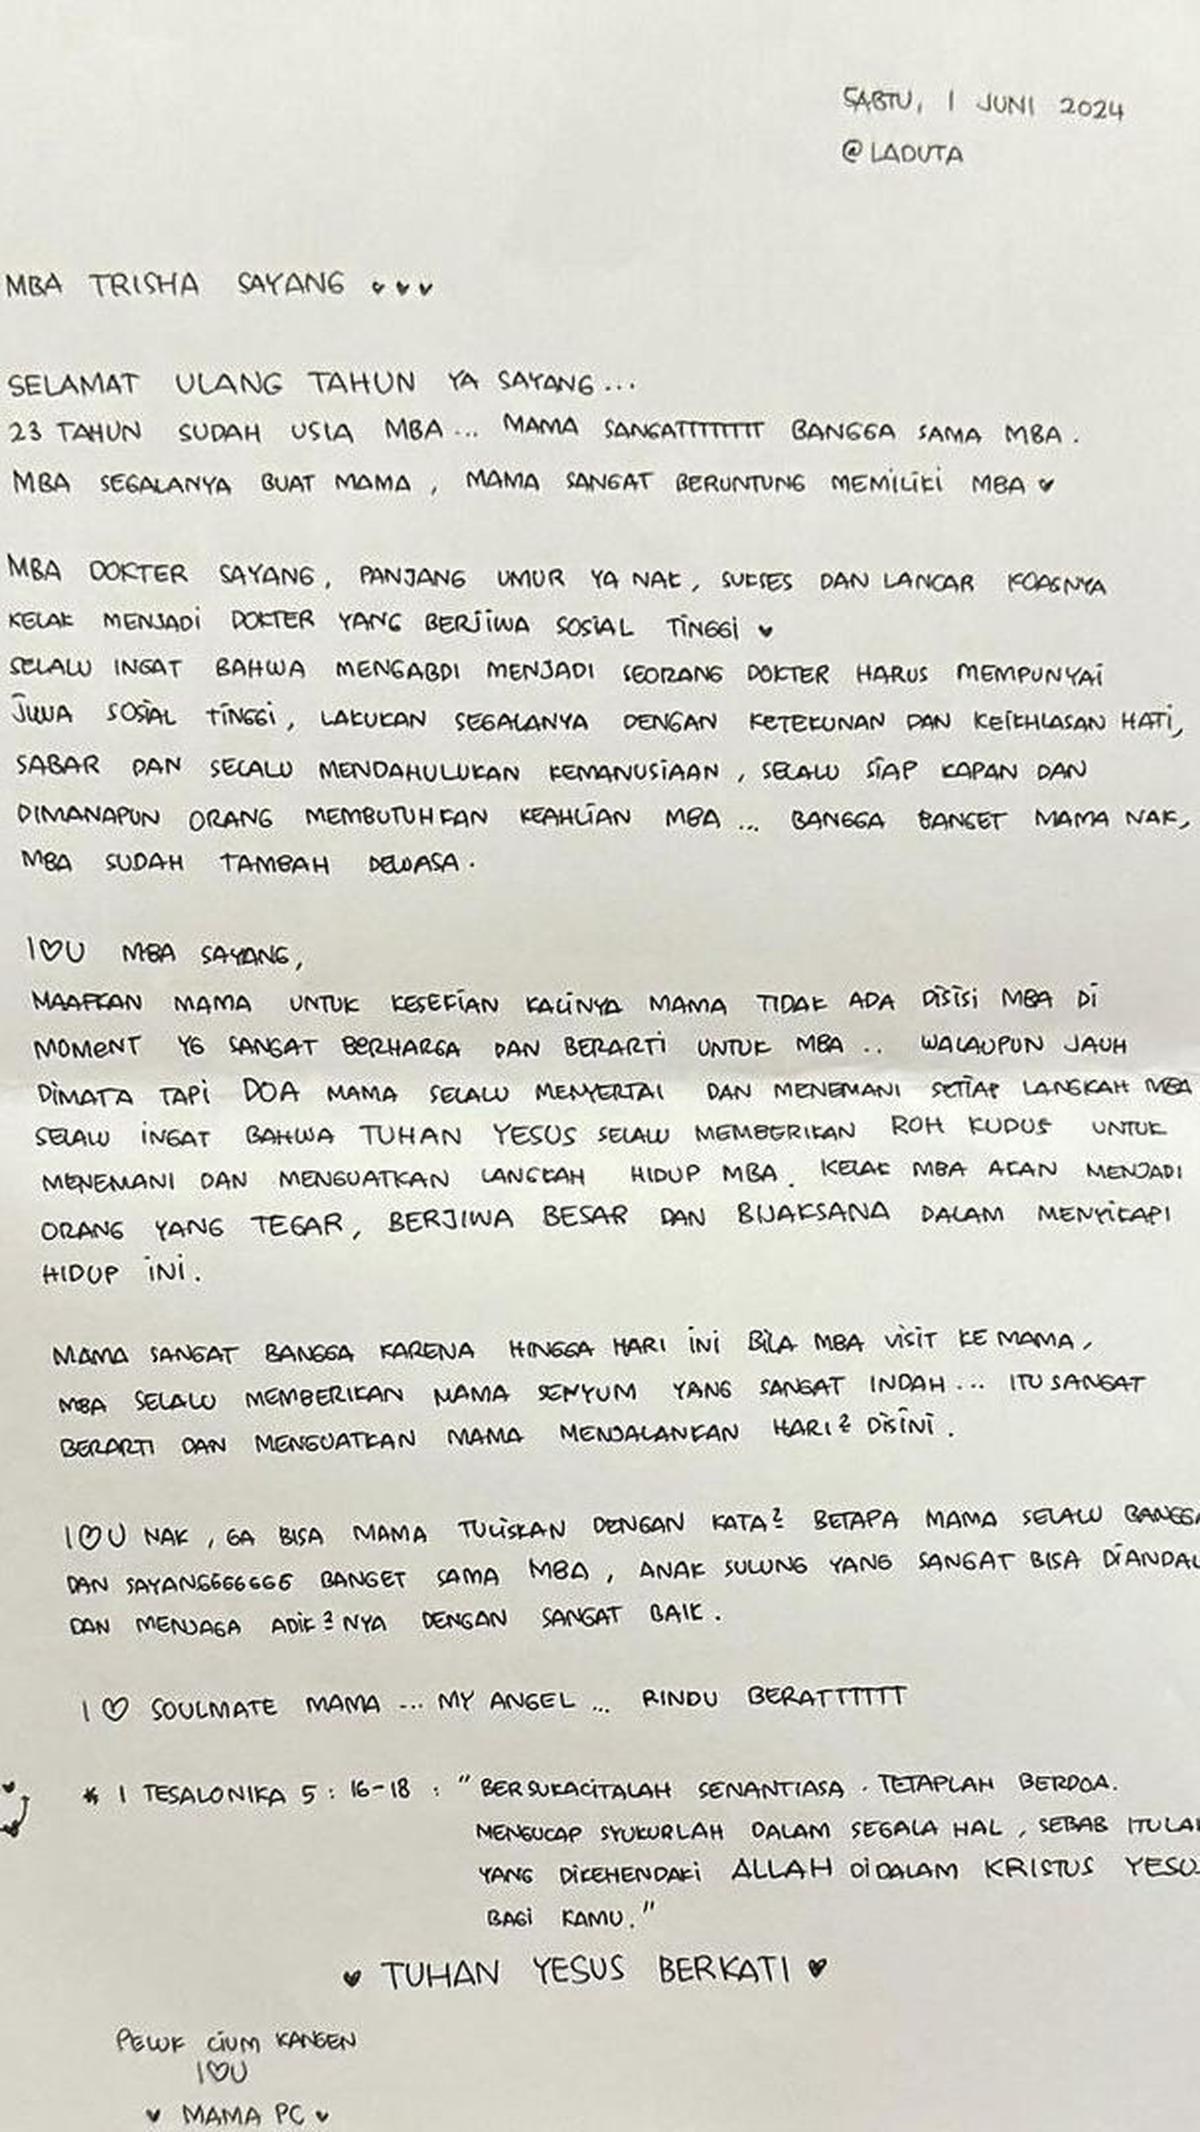 SABTU, 1 JUNI 2024
@LADUTA
MBA TRISHA SAYANG ♥♥♥
SELAMAT ULANG TAHUN YA SAYANG...
23 TAHUN SUDAH USIA MBA... MAMA SANGATTTTTTTT BANGGA SAMA MBA.
MBA SEGALANYA BUAT MAMA, MAMA SANGAT BERUNTUNG MEMILIKI MBA ♥
MBA DOKTER SAYANG, PANJANG UMUR YA NAK, SUKSES DAN LANCAR KOASNYA
KELAK MENJADI DOKTER YANG BERJIWA SOSIAL TINGGI ♥
SELALU INGAT BAHWA MENGABDI MENJADI SEORANG DOKTER HARUS MEMPUNYAI
JIWA SOSIAL TINGGI, LAKUKAN SEGALANYA DENGAN KETEKUNAN DAN KEIKHLASAN HATI,
SABAR DAN SELALU MENDAHULUKAN KEMANUSIAAN, SELALU SIAP KAPAN DAN
DIMANAPUN ORANG MEMBUTUHKAN KEAHLIAN MBA... BANGGA BANGET MAMA NAK,
MBA SUDAH TAMBAH DEWASA.
I♡U MBA SAYANG,
MAAFKAN MAMA UNTUK KESEKIAN KALINYA MAMA TIDAK ADA DISISI MBA DI
MOMENT YG SANGAT BERHARGA DAN BERARTI UNTUK MBA.. WALAUPUN JAUH
DIMATA TAPI DOA MAMA SELALU MENYERTAI DAN MENEMANI SETIAP LANGKAH MBA
SELALU INGAT BAHWA TUHAN YESUS SELALU MEMBERIKAN ROH KUDUS UNTUK
MENEMANI DAN MENGUATKAN LANGKAH HIDUP MBA. KELAK MBA AKAN MENJADI
ORANG YANG TEGAR, BERJIWA BESAR DAN BIJAKSANA DALAM MENYIKAPI
HIDUP INI.
MAMA SANGAT BANGGA KARENA HINGGA HARI INI BILA MBA VISIT KE MAMA,
MBA SELALU MEMBERIKAN MAMA SENYUM YANG SANGAT INDAH... ITU SANGAT
BERARTI DAN MENGUATKAN MAMA MENJALANKAN HARI2 DISINI.
I♡U NAK, GA BISA MAMA TULISKAN DENGAN KATA2 BETAPA MAMA SELALU BANGGA
DAN SAYANGGGGGGG BANGET SAMA MBA, ANAK SULUNG YANG SANGAT BISA DIANDAL
DAN MENJAGA ADIK2NYA DENGAN SANGAT BAIK.
I ♡ SOULMATE MAMA... MY ANGEL... RINDU BERATTTTTT
* 1 TESALONIKA 5 : 16-18 : "BERSUKACITALAH SENANTIASA. TETAPLAH BERDOA.
MENGUCAP SYUKURLAH DALAM SEGALA HAL, SEBAB ITULAH
YANG DIKEHENDAKI ALLAH DIDALAM KRISTUS YESU
BAGI KAMU."
♥ TUHAN YESUS BERKATI ♥
PELUK CIUM KANGEN
I♡U
♥ MAMA PC ♥